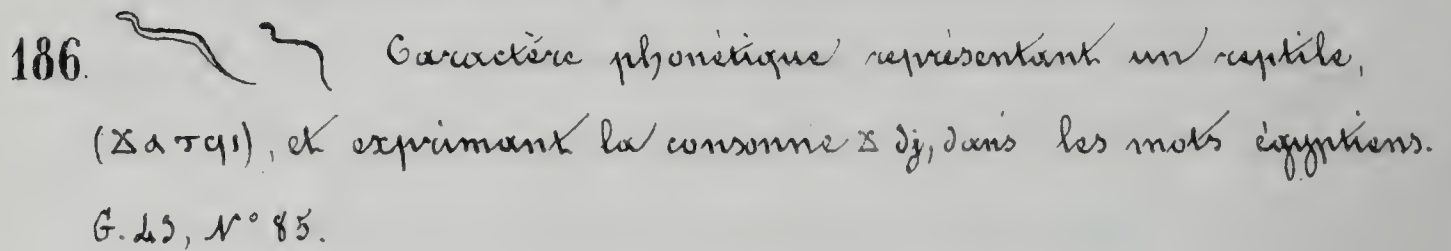 186. 𓆓 Caractère phonétique représentant un reptile,
(ϪⲁⲧϥⲒ), et exprimant la consonne ϫ dj, dans les mots égyptiens.
G. 43, N° 85.